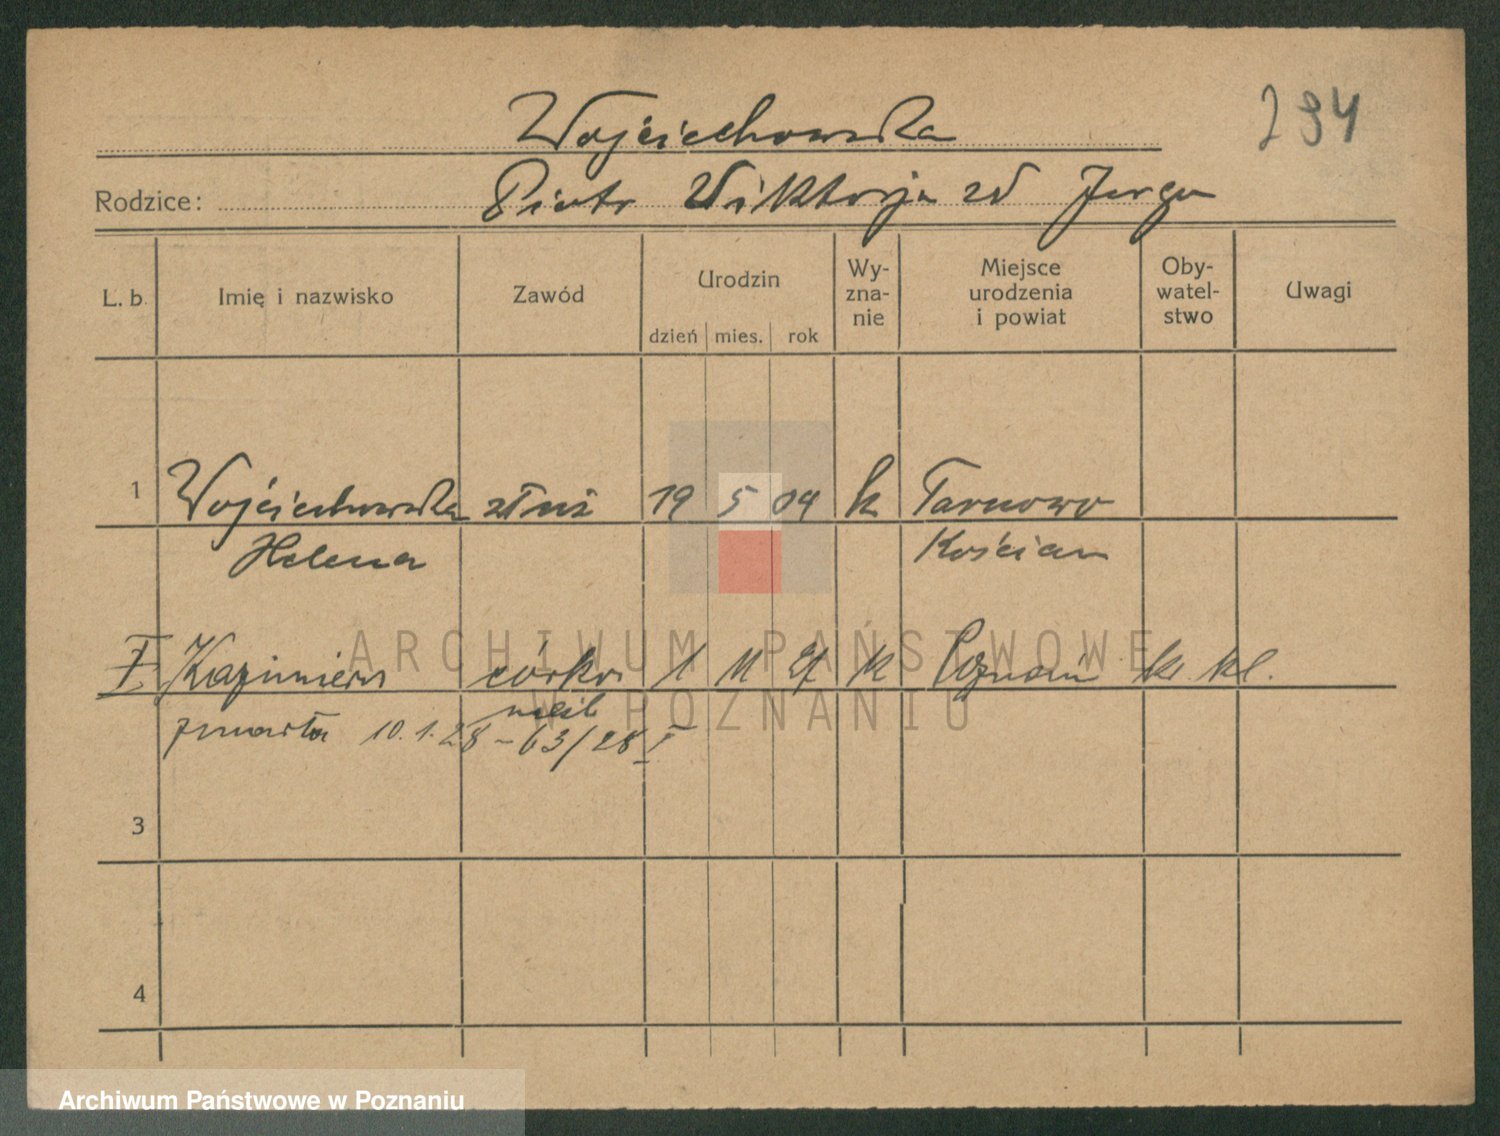 Wojciechowska
294
Rodzice: Piotr Wiktorja zd Jerga
L. b. Imię i nazwisko Zawód Urodzin dzień mies. rok Wy-zna-nie Miejsce urodzenia i powiat Oby-watel-stwo Uwagi
1 Wojciechowska służ 19 5 04 k Tarnowo
Helena Kościan
Kazimiera córka 1 11 27 k Poznań
nieśl
zmarła 10.1.28 – 63/28 I
3
4
ARCHIWUM PAŃSTWOWE
W POZNANIU
Archiwum Państwowe w Poznaniu